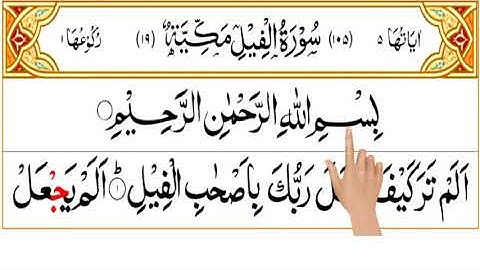 اٰیَاتُهَا ٥ (١٠٥) سُوْرَةُ الْفِیْلِ مَكِّیَّةٌ (١٩) رُكُوْعُهَا ١
بِسْمِ اللّٰهِ الرَّحْمٰنِ الرَّحِیْمِ
اَلَمْ تَرَ كَیْفَ رَبُّكَ بِاَصْحٰبِ الْفِیْلِ ؕ ۝١ اَلَمْ یَجْعَلْ